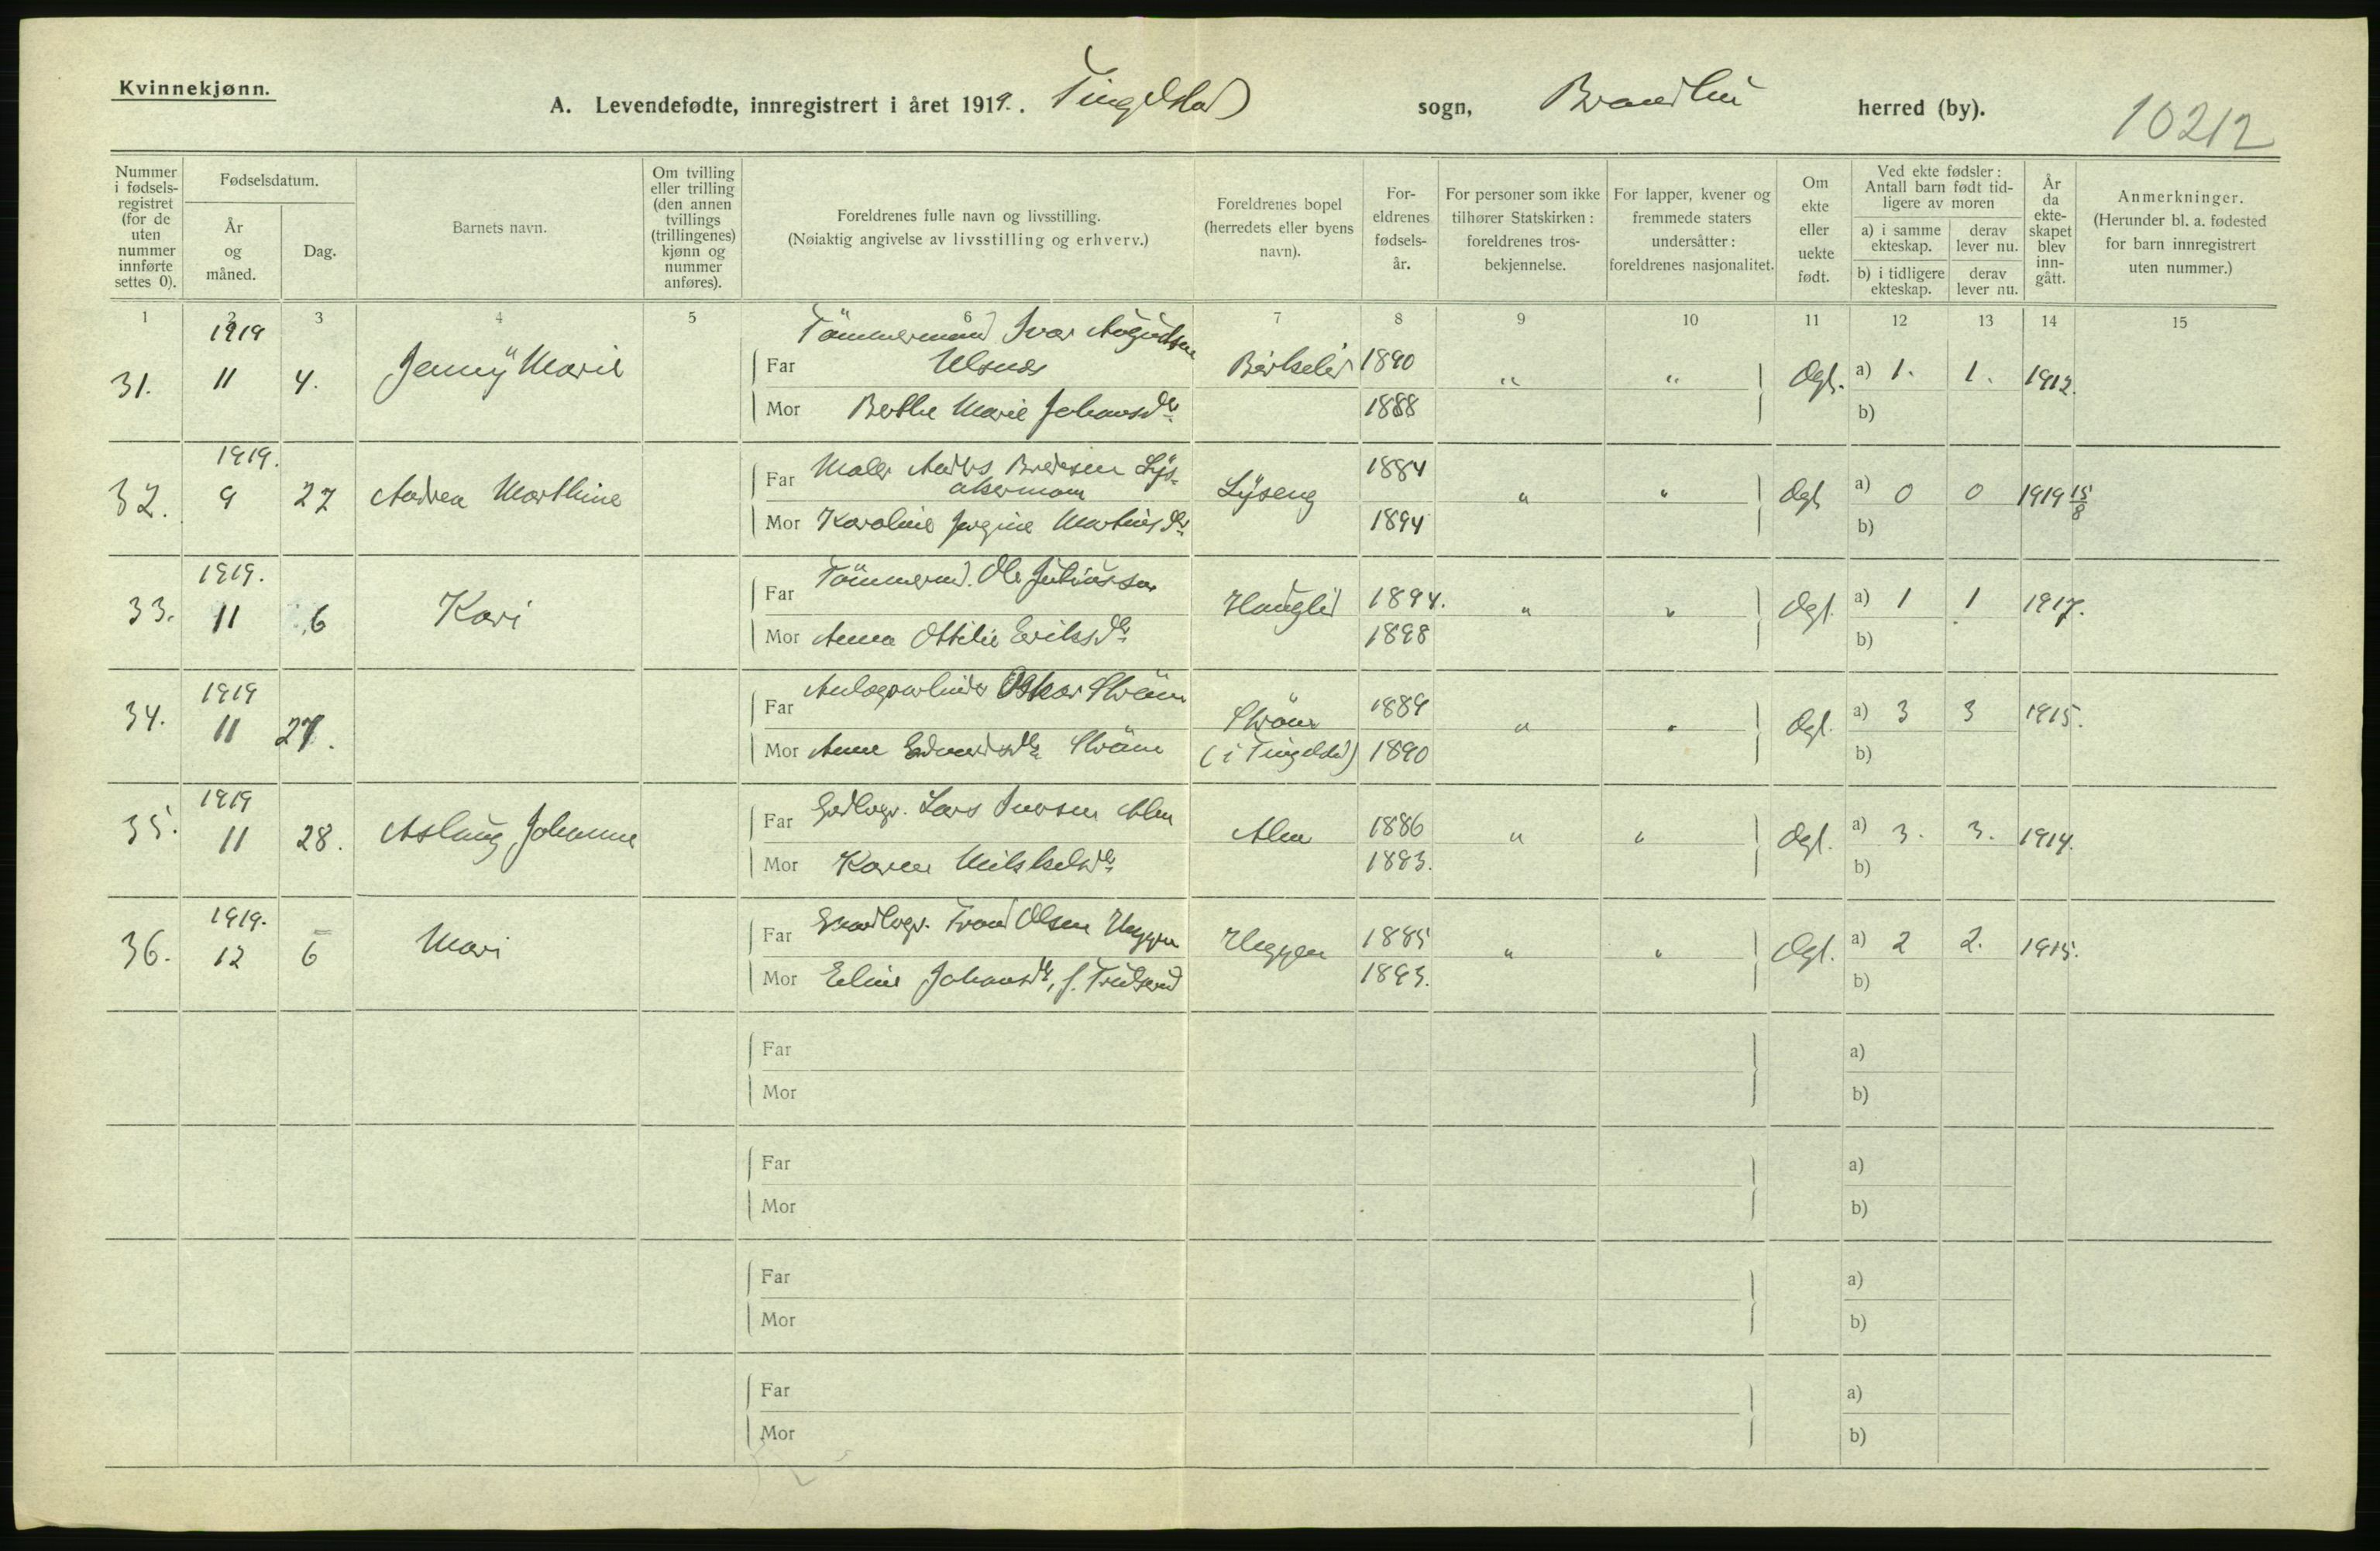 Kvinnekjønn.
A. Levendefødte, innregistrert i året 1919. Tingelstad sogn, Brandbu herred (by).
10212
Nummer i fødsels-registret (for de uten nummer innførte settes 0).
Fødselsdatum.
År og måned.
Dag.
Barnets navn.
Om tvilling eller trilling (den annen tvillings (trillingenes) kjønn og nummer anføres).
Foreldrenes fulle navn og livsstilling.
(Nøiaktig angivelse av livsstilling og erhverv.)
Foreldrenes bopel (herredets eller byens navn).
For-eldrenes fødsels-år.
For personer som ikke tilhører Statskirken: foreldrenes tros-bekjennelse.
For lapper, kvener og fremmede staters undersåtter: foreldrenes nasjonalitet.
Om ekte eller uekte født.
Ved ekte fødsler: Antall barn født tid-ligere av moren
a) i samme ekteskap.
derav lever nu.
b) i tidligere ekteskap.
derav lever nu.
År da ekte-skapet blev inn-gått.
Anmerkninger.
(Herunder bl. a. fødested for barn innregistrert uten nummer.)
1 2 3 4 5 6 7 8 9 10 11 12 13 14 15
1919 Tömmermand Ivar Augudsen
31. 11 4. Jenny Marie Far Ulsnes 1890 " " Ogt. a) 1. 1. 1912.
Mor Berthe Marie Johansdr 1888 b)
1919. Far Maler Anders Bredesen Lys- 1884
akermoen
32. 9 27 Andrea Marthine Lyseng " " Ogt a) 0 0 1919 15/8
Mor Karoline Jørgine Martinsdr 1894 b)
1919. Far Tömmerm. Ole Juliussen
33. 11 6 Kari Hauglid 1894. " " Ogt. a) 1 1 1917.
Mor Anna Ottilie Eriksdr 1898 b)
1919 Far Anlægsarbeider Oskar Ström 1889
34. 11 27. Ström " " Ogt. a) 3 3 1915.
Mor Anne Edvardsdr Ström (i Tingelstad) 1890 b)
1919 Far Gårdbgr. Lars Iversen Alm 1886
35. 11 28. Aslaug Johanne Alm " " Ogt. a) 3. 3. 1914.
Mor Karen Mikkelsdr 1893. b)
1919. Far Gaardbgr. Trond Olsen Heggen 1885
36. 12 6 Mari Heggen " " Ogt. a) 2 2. 1915.
Mor Eline Johansdr, f. 1893. b)
Far a)
Mor b)
Far a)
Mor b)
Far a)
Mor b)
Far a)
Mor b)